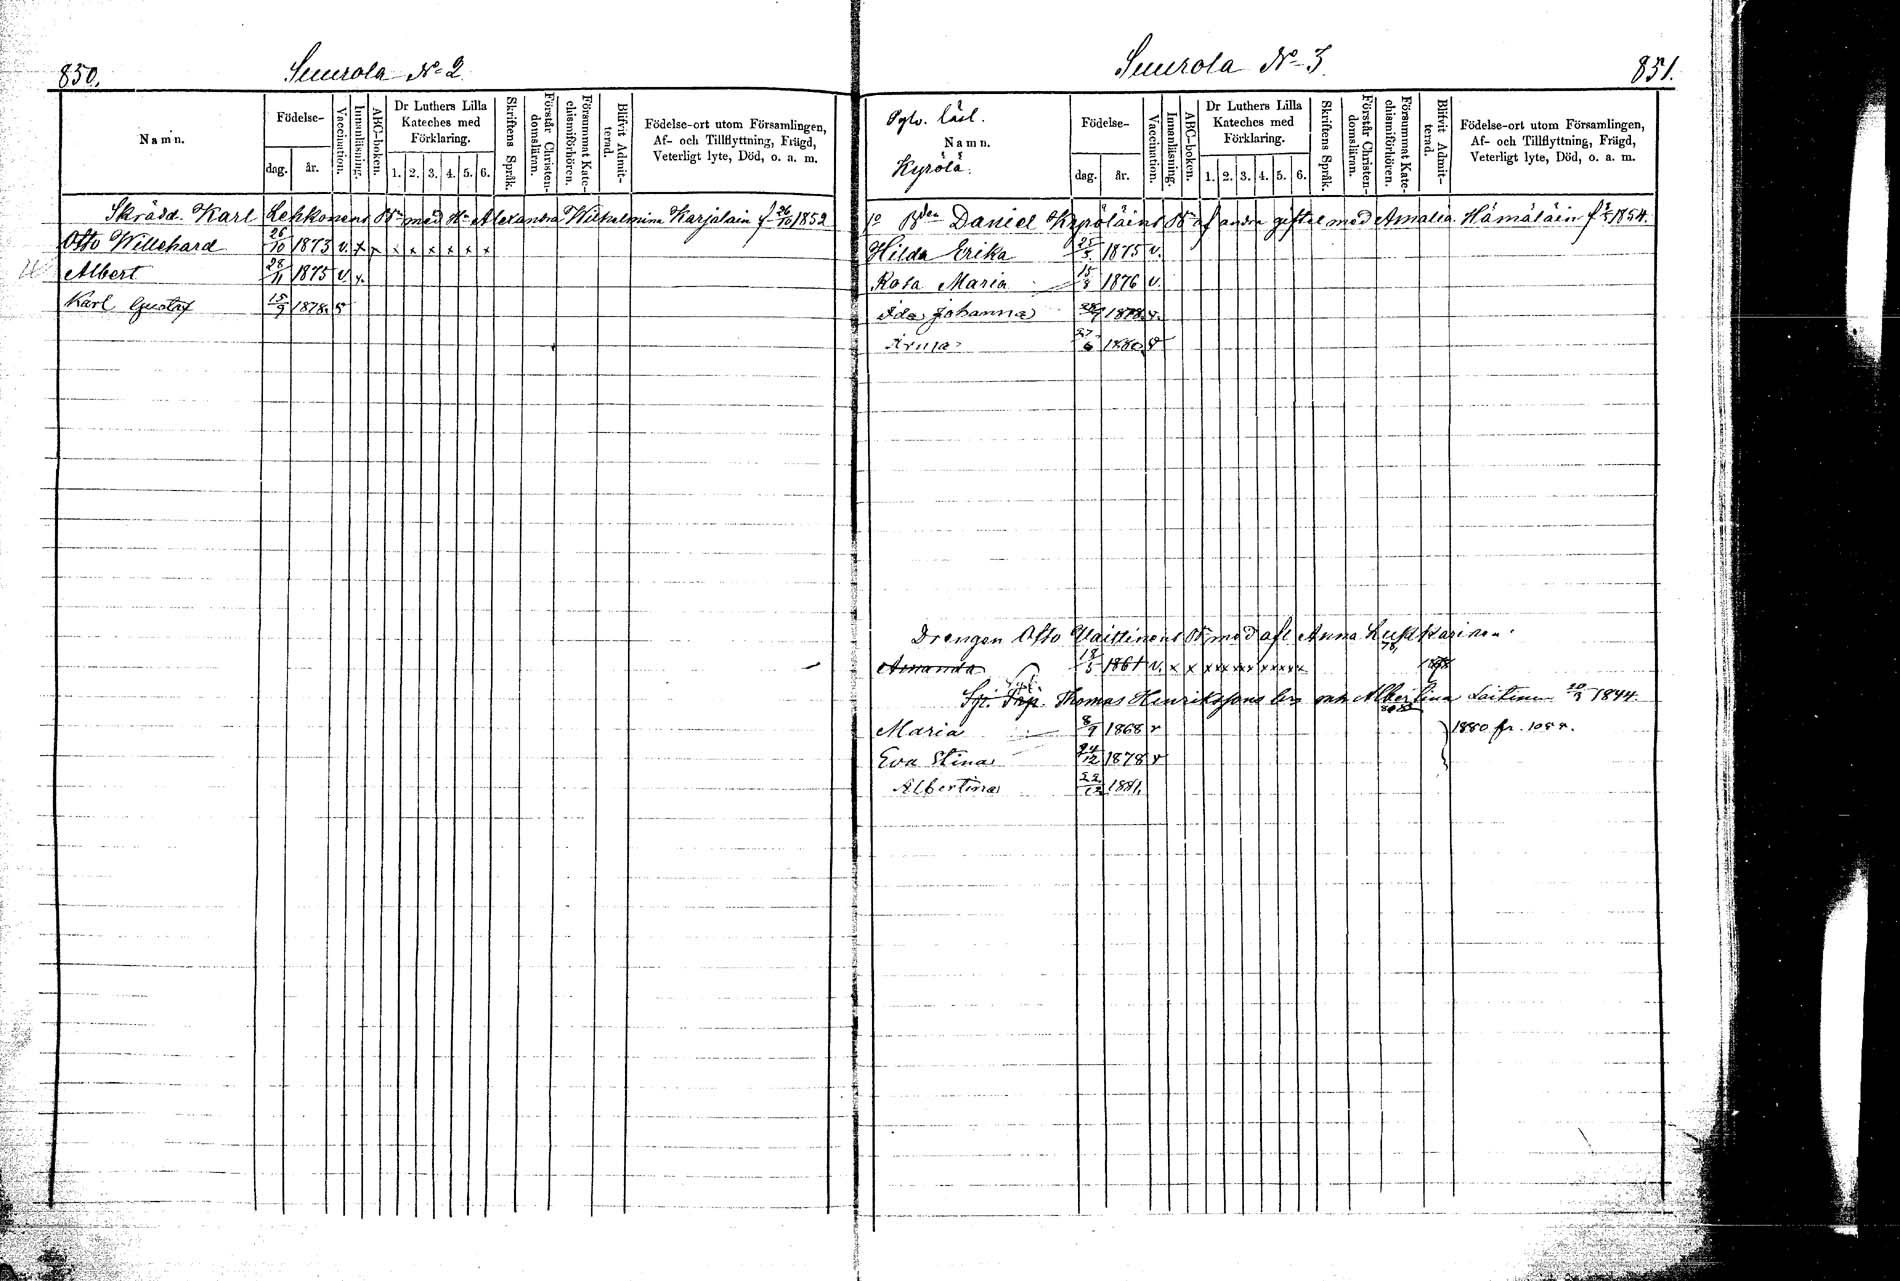 850.
Suurola No 2
Namn.
Födelse-
dag.
år.
Vaccination.
Innanläsning.
ABC-boken.
Dr Luthers Lilla Kateches med Förklaring.
1. 2. 3. 4. 5. 6.
Skriftens Språk.
Förstår Christen-domsläran.
Försummat Kate-chismiförhören.
Blifvit Admit-terad.
Födelse-ort utom Församlingen,
Af- och Tillflyttning, Frägd,
Veterligt lyte, Död, o. a. m.
Skrädd. Karl Lehkonens Bn med Hu Alexandra Wilhelmina Karjalain f 26/10 1852
Otto Willehard 26/10 1873 v. x x x x x x x x
Albert 28/11 1875 v. x
Karl Gustaf 15/9 1878.
Suurola No 3.
851.
Namn.
Kyrölä.
Födelse-
dag.
år.
Vaccination.
Innanläsning.
ABC-boken.
Dr Luthers Lilla Kateches med Förklaring.
1. 2. 3. 4. 5. 6.
Skriftens Språk.
Förstår Christen-domsläran.
Försummat Kate-chismiförhören.
Blifvit Admit-terad.
Födelse-ort utom Församlingen,
Af- och Tillflyttning, Frägd,
Veterligt lyte, Död, o. a. m.
Bden Daniel Kyröläins Bn af andra giftet med Amalia Hämäläin f 1854.
Hilda Erika 25/5 1875 v.
Rosa Maria 15/8 1876 v.
Ida Johanna 1878. v.
27/6 1880 v
Drengen Otto Bn med afl Anna Lukkarinen
Amanda 18/5 1861 v. x x x x x x x x x x x
Thomas Henrikssons Albertina Laitinen 1844.
Maria 8/9 1868 v 1880 fr.
Eva Stina 24/12 1878 v
Albertina 22/12 1881.